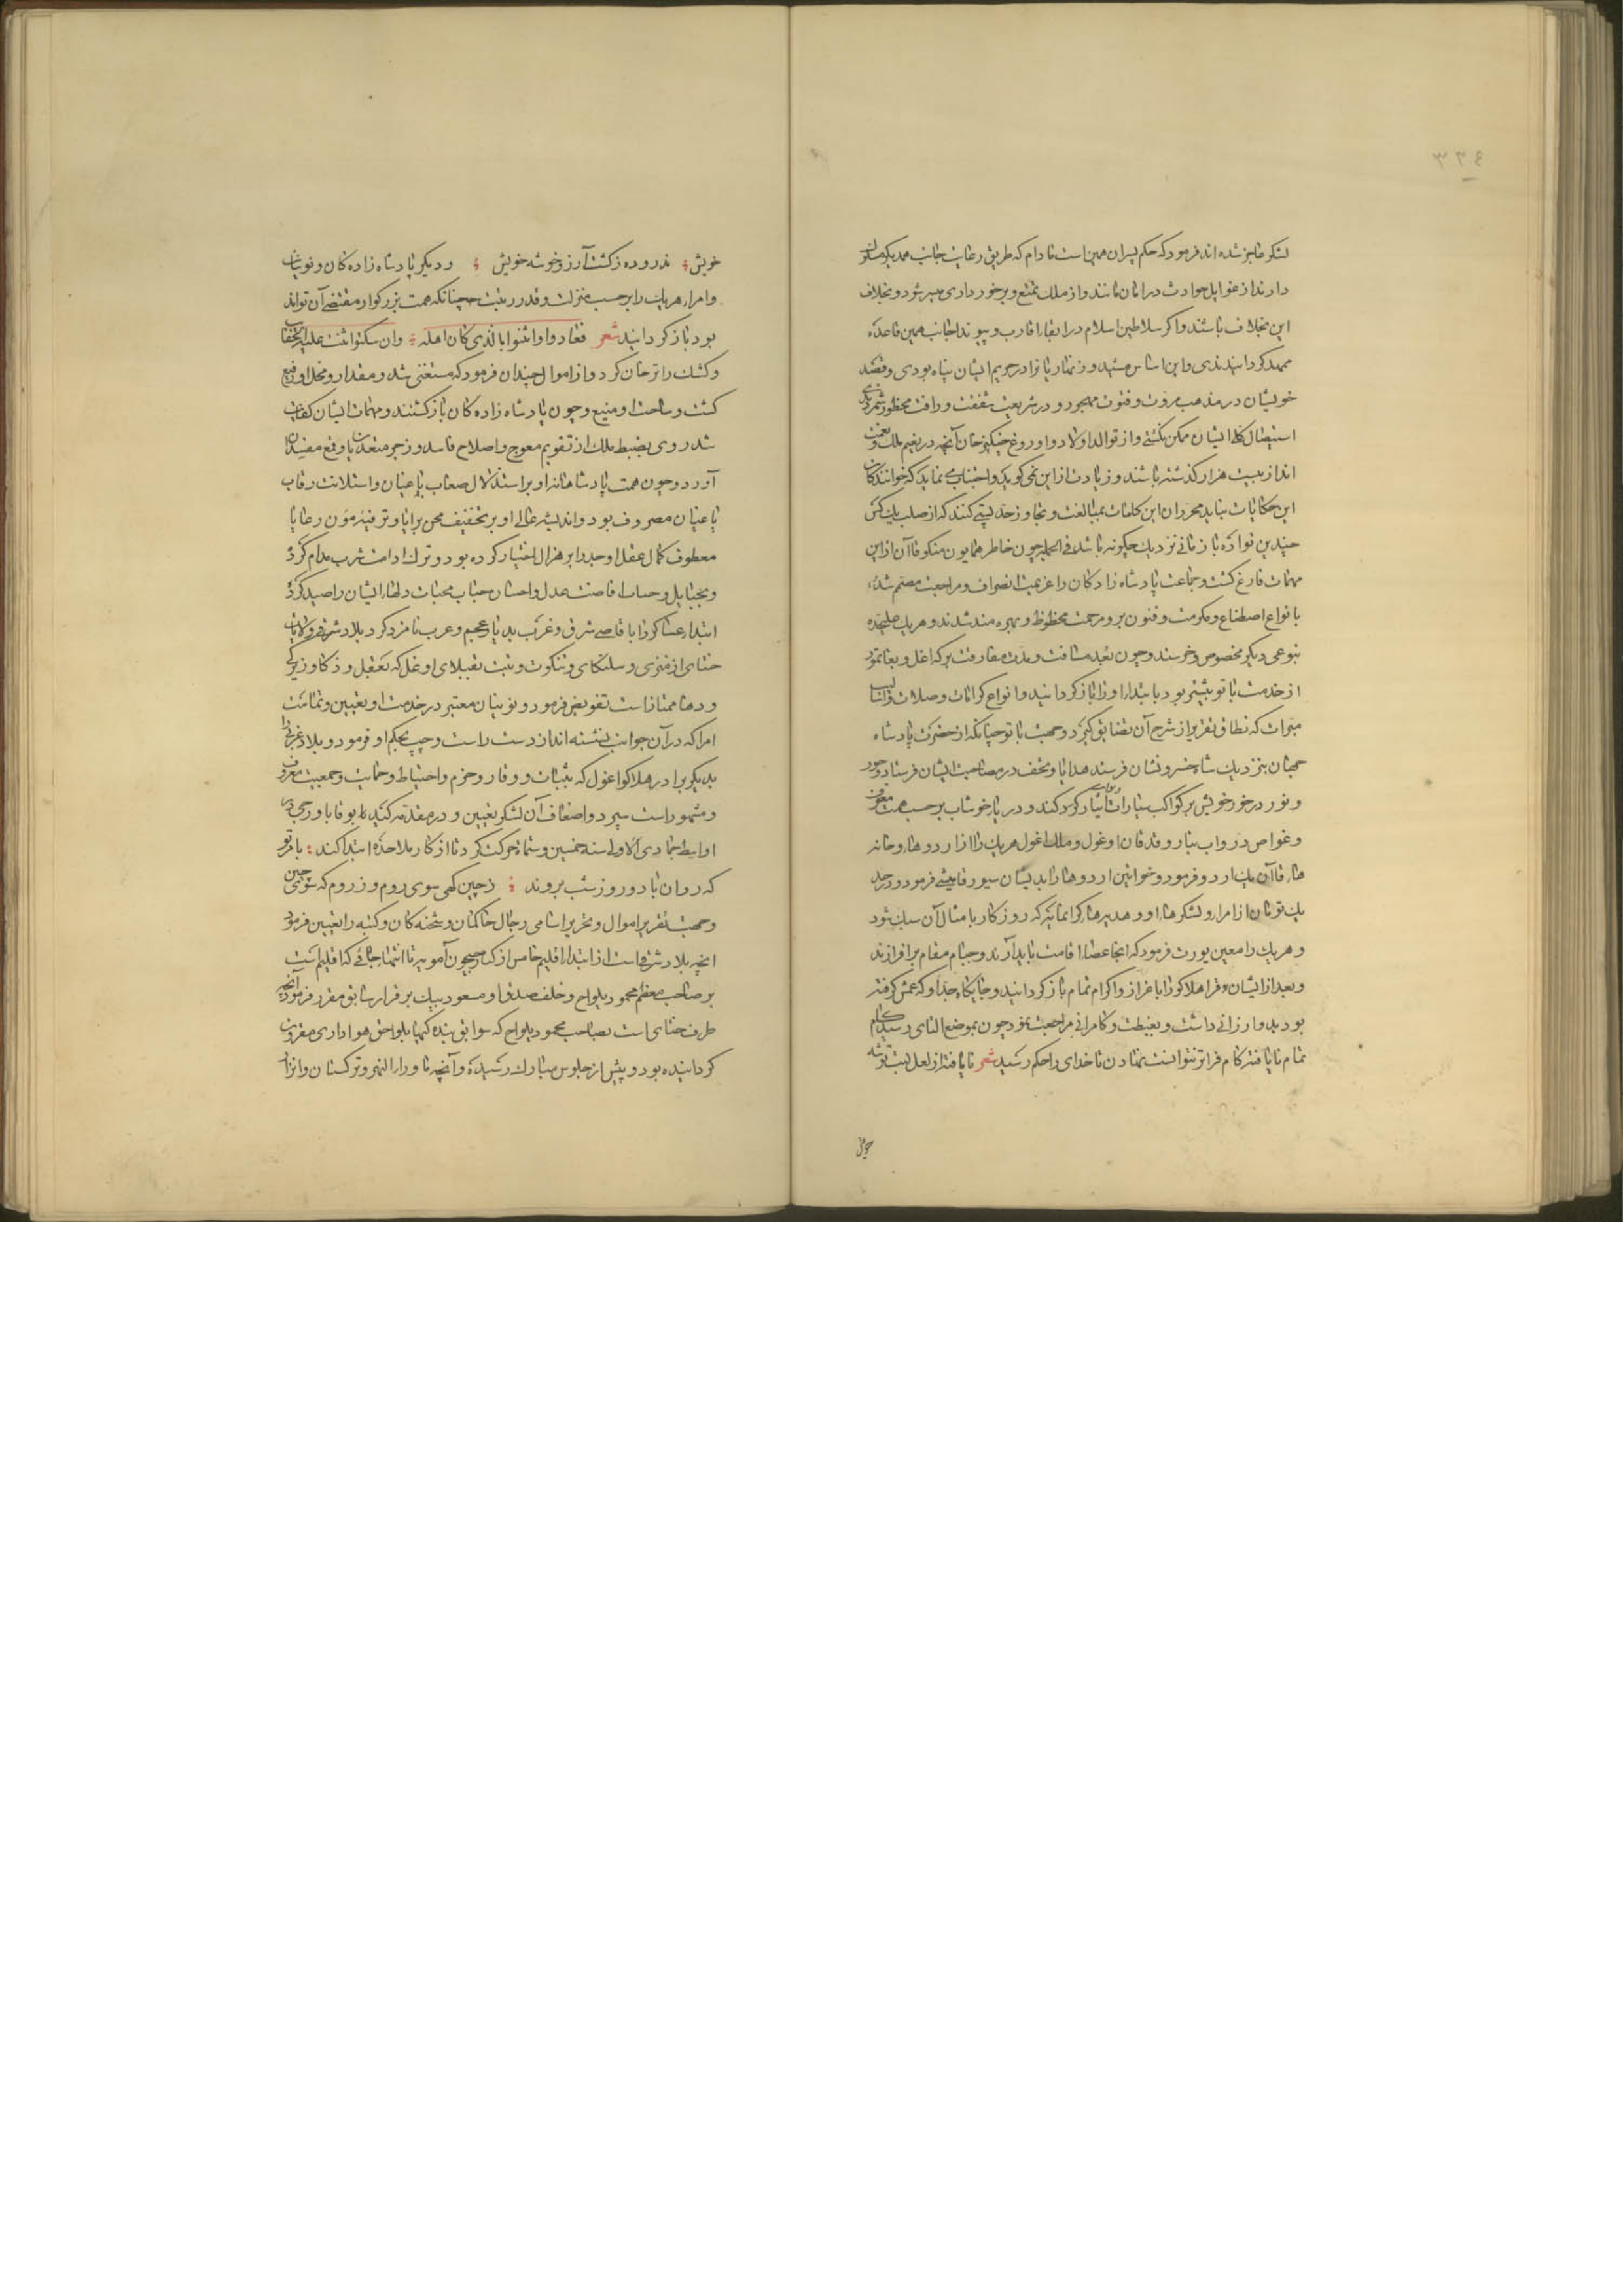 ۳۳٤
لشکر عاجز شده اند فرمود که حکم پسران همین است تا دام که طریق رعایت جانب همدیگر مسلوک
دارند از غوایل حوادث در امان مانند و از ملک تمتع و برخورداری میسر شود و بخلاف
این بخلاف باشند و اگر سلاطین اسلام در ابقاء اقارب و پیوند اجانب همین قاعده
ممهد گردانیدندی و این اساس مشید و زنهاریانرا در حریم ایشان پناه بودی و قصد
خویشان در مذهب مروت و فتوت مهجور و در شریعت شفقت و رافت محظور شمردندی
استیصال کلی ایشان ممکن نگشتی و از توالد اولاد و اوروغ جنکیز خان آنچه در نعیم ملک و نعمت
اند از بیست هزار گذشته باشند و زیادت ازین نمی گوید و اجتناب می نماید که خوانندگان
این حکایات نباید محرران این کلمات بمبالغت و تجاوز حد نسبتی کنند که از صلب یک کس
چندین نواده باز مانی نزدیک چگونه باشد فی الجمله چون خاطر همایون منکو قاآن ازین
مهمات فارغ گشت و جماعت پادشاه زادگان را عزیمت انصراف و مراجعت مصمم شد
با انواع اصطناع و مکرمت و فنون بر و مرحمت محظوظ و بهره مند شدند و هر یک علیحده
بنوعی دیگر مخصوص و خرسند و چون بعد مسافت و مدت مفارقت برکه اغل و بغا تمور
از خدمت باتو بیشتر بود بابتدا ایشانرا باز گردانید و انواع کرامات و صلات و اسالیب
مبرات که نطاق تقریر از شرح آن تضایق گیرد و جهت باتو چنانکه از حضرت پادشاه
جهان بنزدیک شاه خسرو نشان فرستد هدایا و تحف در مصاحبت ایشان فرستاد و جود
و نور در خور خویش بر کواکب سیارات نثار کرد کند و دریا خوشاب بر حسب همت معروف
و غواص در و اب نیار و قدقان اوغول و ملک اغول هر یک را از اردوها و خانه
ها قاآن یک اردو فرمود و خواتین اردوها را بدیشان سیورقامیشی فرمود و در حد
یک تومان از امرا و لشکرها و هدیه های گرانمایه که روزگار بامثال آن سبک شود
و هر یک را معین یورت فرمود که آنجا عصا اقامت باید آرند و خیام مقام برافرازند
و بعد از ایشان قرا هلاکو را با عزاز و اکرام تمام باز گردانید و جایگاه جد او که عمش گرفته
بود بدو ارزانی داشت و بغبطت و کامرانی مراجعت نمود چون بموضع التای رسید کام
تمام نایافته کام فراتر نتوانست نهادن تا خدای را حکم رسید شعر نایافته از لعل لبت توشه
خویش ؛ ندروده ز کشت آرزو خوشه خویش ؛ و دیگر پادشاه زادگان و نوینان
و امراء هر یک را بر حسب منزلت و قدر رتبت چنانکه همت بزرگوار مقتضی آن تواند
بود باز گردانید شعر فعادوا و اثنوا بالذی کان اهله ؛ و ان سکتوا اثنت علیه الحقائب
و کشک را ترخان کرد و از اموال چندان فرمود که مستغنی شد و مقدار و محل او رفیع
گشت و ساحت او منیع و چون پادشاه زادگان باز گشتند و مهمات ایشان کفایت
شد روی بضبط ملک از تقویم معوج و اصلاح فاسد و زجر متعدیان و قمع مفسدان
آورد و چون همت پادشاهانه او بر استذلال صعاب یاغیان و استلانت رقاب
یاغیان مصروف بود و اندیشه عالی او بر تخفیف محن برایا و ترفیه مون رعایا
معطوف کمال عقل او جد را بر هزل اختیار کرده بود و ترک ادامت شرب مدام کرد
و بحبایل و حسابات فاصت عدل و احسان حباب محبات دلهاء ایشان را صید کرد
ابتدا عساکر را باقاصی شرق و غرب بدیار عجم و عرب نامزد کرد بلاد شرقی و ولایات
ختای از منزی و سلنکای و تنکوت و تبت بقبلای اوغل که بعقل و ذکا و زیرکی
و دها ممتاز است تفویض فرمود و نوینان معتبر در خدمت او تعیین و تمامت
امرا که در آن جوانب نشسته اند از دست راست و چپ بحکم او فرمود و بلاد غربی را
بدیگر برادر هلاکو اغول که بثبات و وقار و حزم و احتیاط و حمایت و حمیت معروف
و مشهور است سپرد و اضعاف آن لشکر تعیین و در مقدمه کتبوقا باورجی در
اواسط جمادی الاولی سنه خمسین و ستمایه حرکت کرد تا از کار ملاحده ابتدا کند ؛ بامر تو
که روان باد و روز شب بروند ؛ ز چین کهی سوی روم و ز روم که سوی چین
و جهت تقریر اموال و تحریر اسامی رجال حاکمان و شحنه کان و کتبه را تعیین فرمود
آنچه بلاد شرقی است از ابتداء اقلیم خامس از کنار جیحون آمویه تا انتها جائی که اقلیم است
بر صاحب معظم محمود یلواج و خلف صدق او مسعود بیک بر قرار سابق مقرر فرمود آنچه
طرف ختای است بصاحب محمود یلواج که سوابق بندگیها بلواحق هواداری مقرون
گردانیده بود و پیش از جلوس مبارک رسیده و آنچه ماورا النهر و ترکستان و اترار